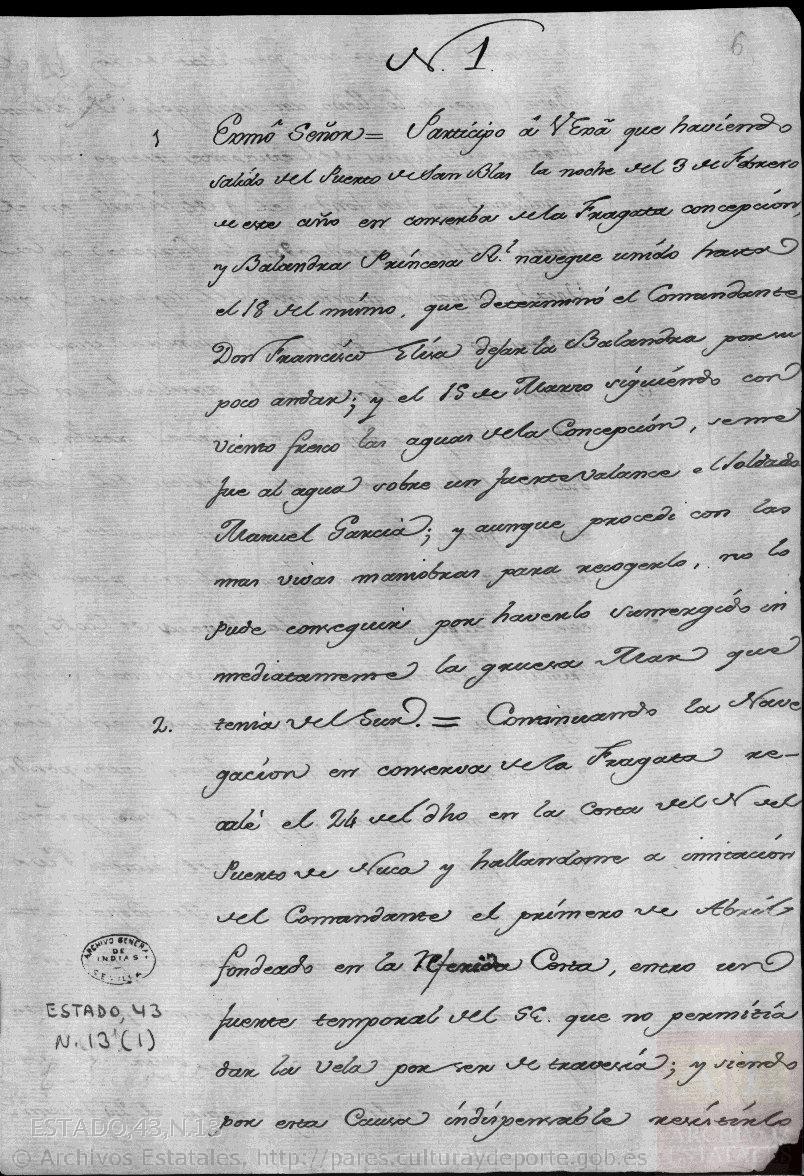 N. 1.
6
1 Exmõ Señor= Participo â V Exã que haviendo
salido del Puerto de San Blas la noche del 3 de Febrero
de este año en conserba de la Fragata concepción,
y Balandra Princesa Rl. navegue unido hasta
el 18 del mismo, que determinó el Comandante
Don Francisco Elisa dejar la Balandra por su
poco andar; y el 15 de Marzo siguiendo con
viento fresco las aguas dela Concepción, seme
fue al agua sobre un fuerte valance el Soldado
Manuel Garcia; y aunque procedi con las
mas vivas maniobras para recogerlo, no lo
pude conseguir por haverlo sumergido in
mediatamente la gruesa Mar que
2. tenia del Sur. = Continuando la Nave
gacion en conserva de la Fragata re-
calé el 24 del dho en la Costa del N del
Puerto de Nuca y hallandome a imitación
del Comandante el primero de Abril
fondeado en la referida Costa, entro un
fuerte temporal del SE. que no permitía
dar la vela por ser de travesía; y siendo
por esta Causa indispensable resistirlo
ARCHIVO GENERAL
DE
INDIAS
SEVILLA
ESTADO, 43
N. 13 (1)
ESTADO,43,N.13
© Archivos Estatales, http://pares.culturaydeporte.gob.es